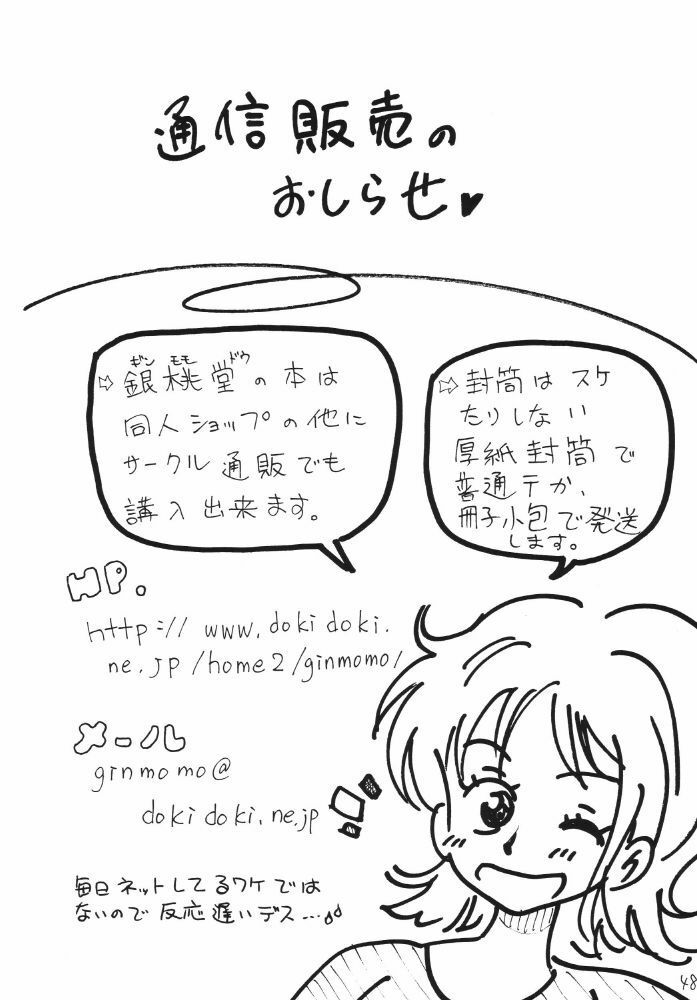 通信販売の
おしらせ♥
⇨銀桃堂の本は
ギンモモドウ
同人ショップの他に
サークル通販でも
講入出来ます。
⇨封筒はスケ
たりしない
厚紙封筒で
普通テか、
冊子小包で発送
します。
HP.
http://www.dokidoki.
ne.jp/home2/ginmomo/
メール
ginmomo@
dokidoki.ne.jp
毎日ネットしてるワケでは
ないので反応遅いデス…
48